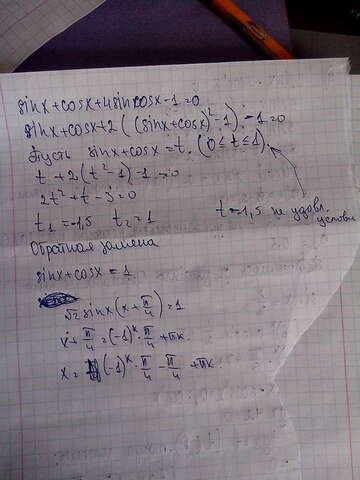 sinx+cosx+4sincosx-1=0
sinx+cosx+2((sinx+cosx)²-1)-1=0
Пусть sinx+cosx=t. (0≤t≤1).
t+2(t²-1)-1=0
2t²+t-3=0
t₁=-1,5 t₂=1
t=-1,5 не удовл. условию
Обратная замена
sinx+cosx=1
√2 sinx(x+π/4)=1
x+π/4=(-1)ᵏ·π/4+πk
x=(-1)ᵏ·π/4-π/4+πk